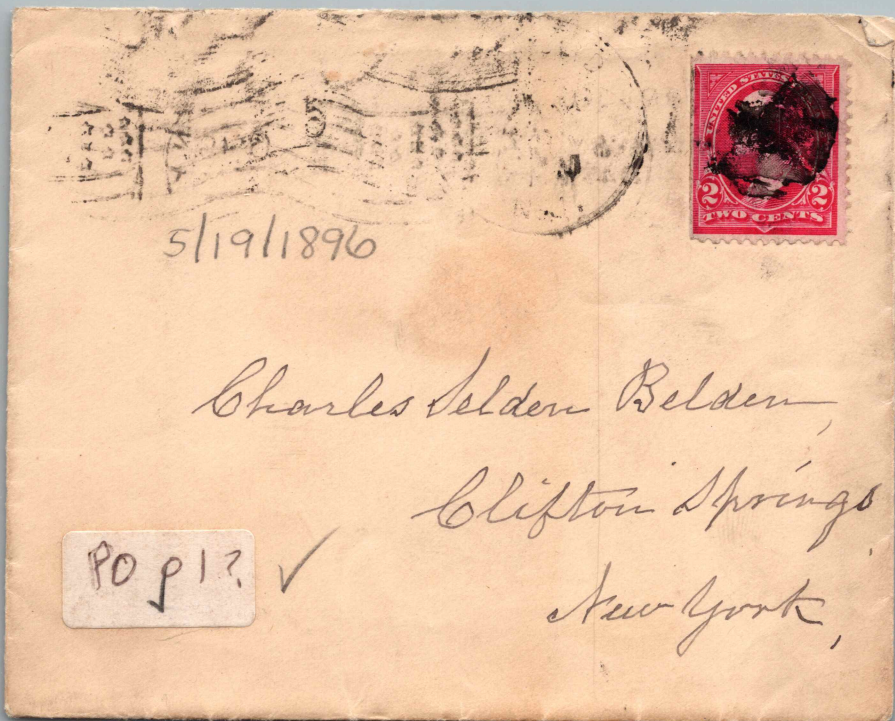 UNITED STATES
2 2
TWO CENTS
5/19/1896
Charles Selden Belden,
Clifton Springs,
New York,
PO p 1?